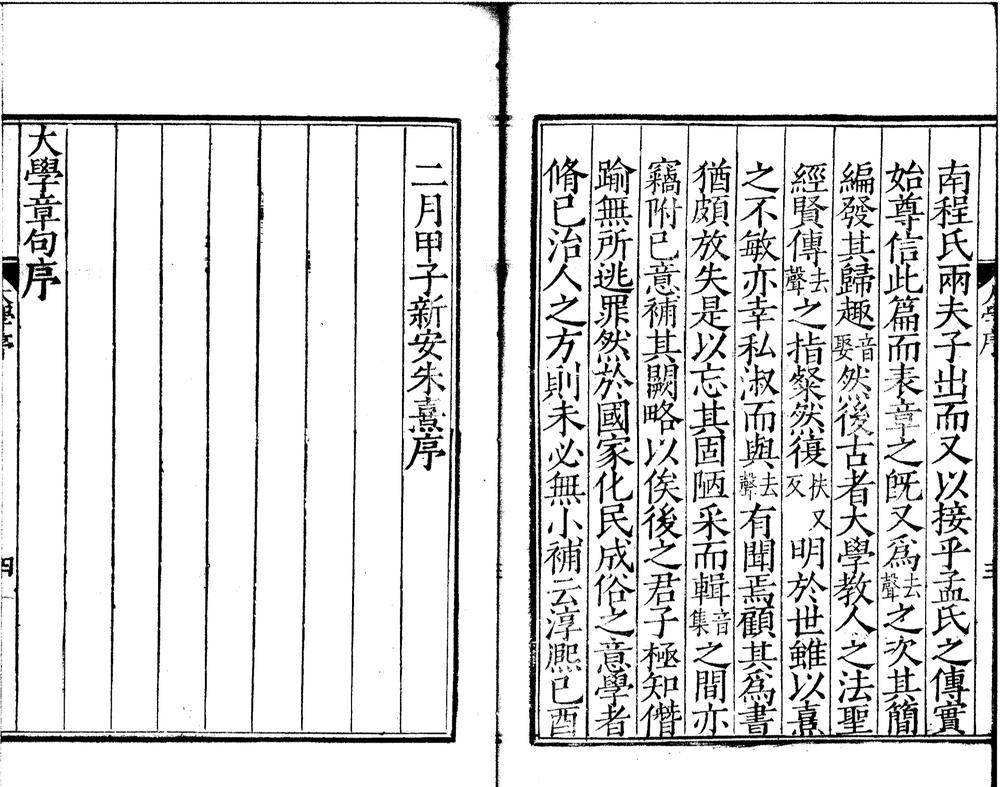 南程氏兩夫子出而又以接乎孟氏之傳實
始尊信此篇而表章之旣又爲去聲之次其簡
編發其歸趣音娶然後古者大學教人之法聖
經賢傳去聲之指粲然復扶又反明於世雖以熹
之不敏亦幸私淑而與去聲有聞焉顧其爲書
猶頗放失是以忘其固陋采而輯音集之間亦
竊附己意補其闕略以俟後之君子極知僭
踰無所逃罪然於國家化民成俗之意學者
脩已治人之方則未必無小補云淳熈已酉
二月甲子新安朱熹序
大學章句序
四